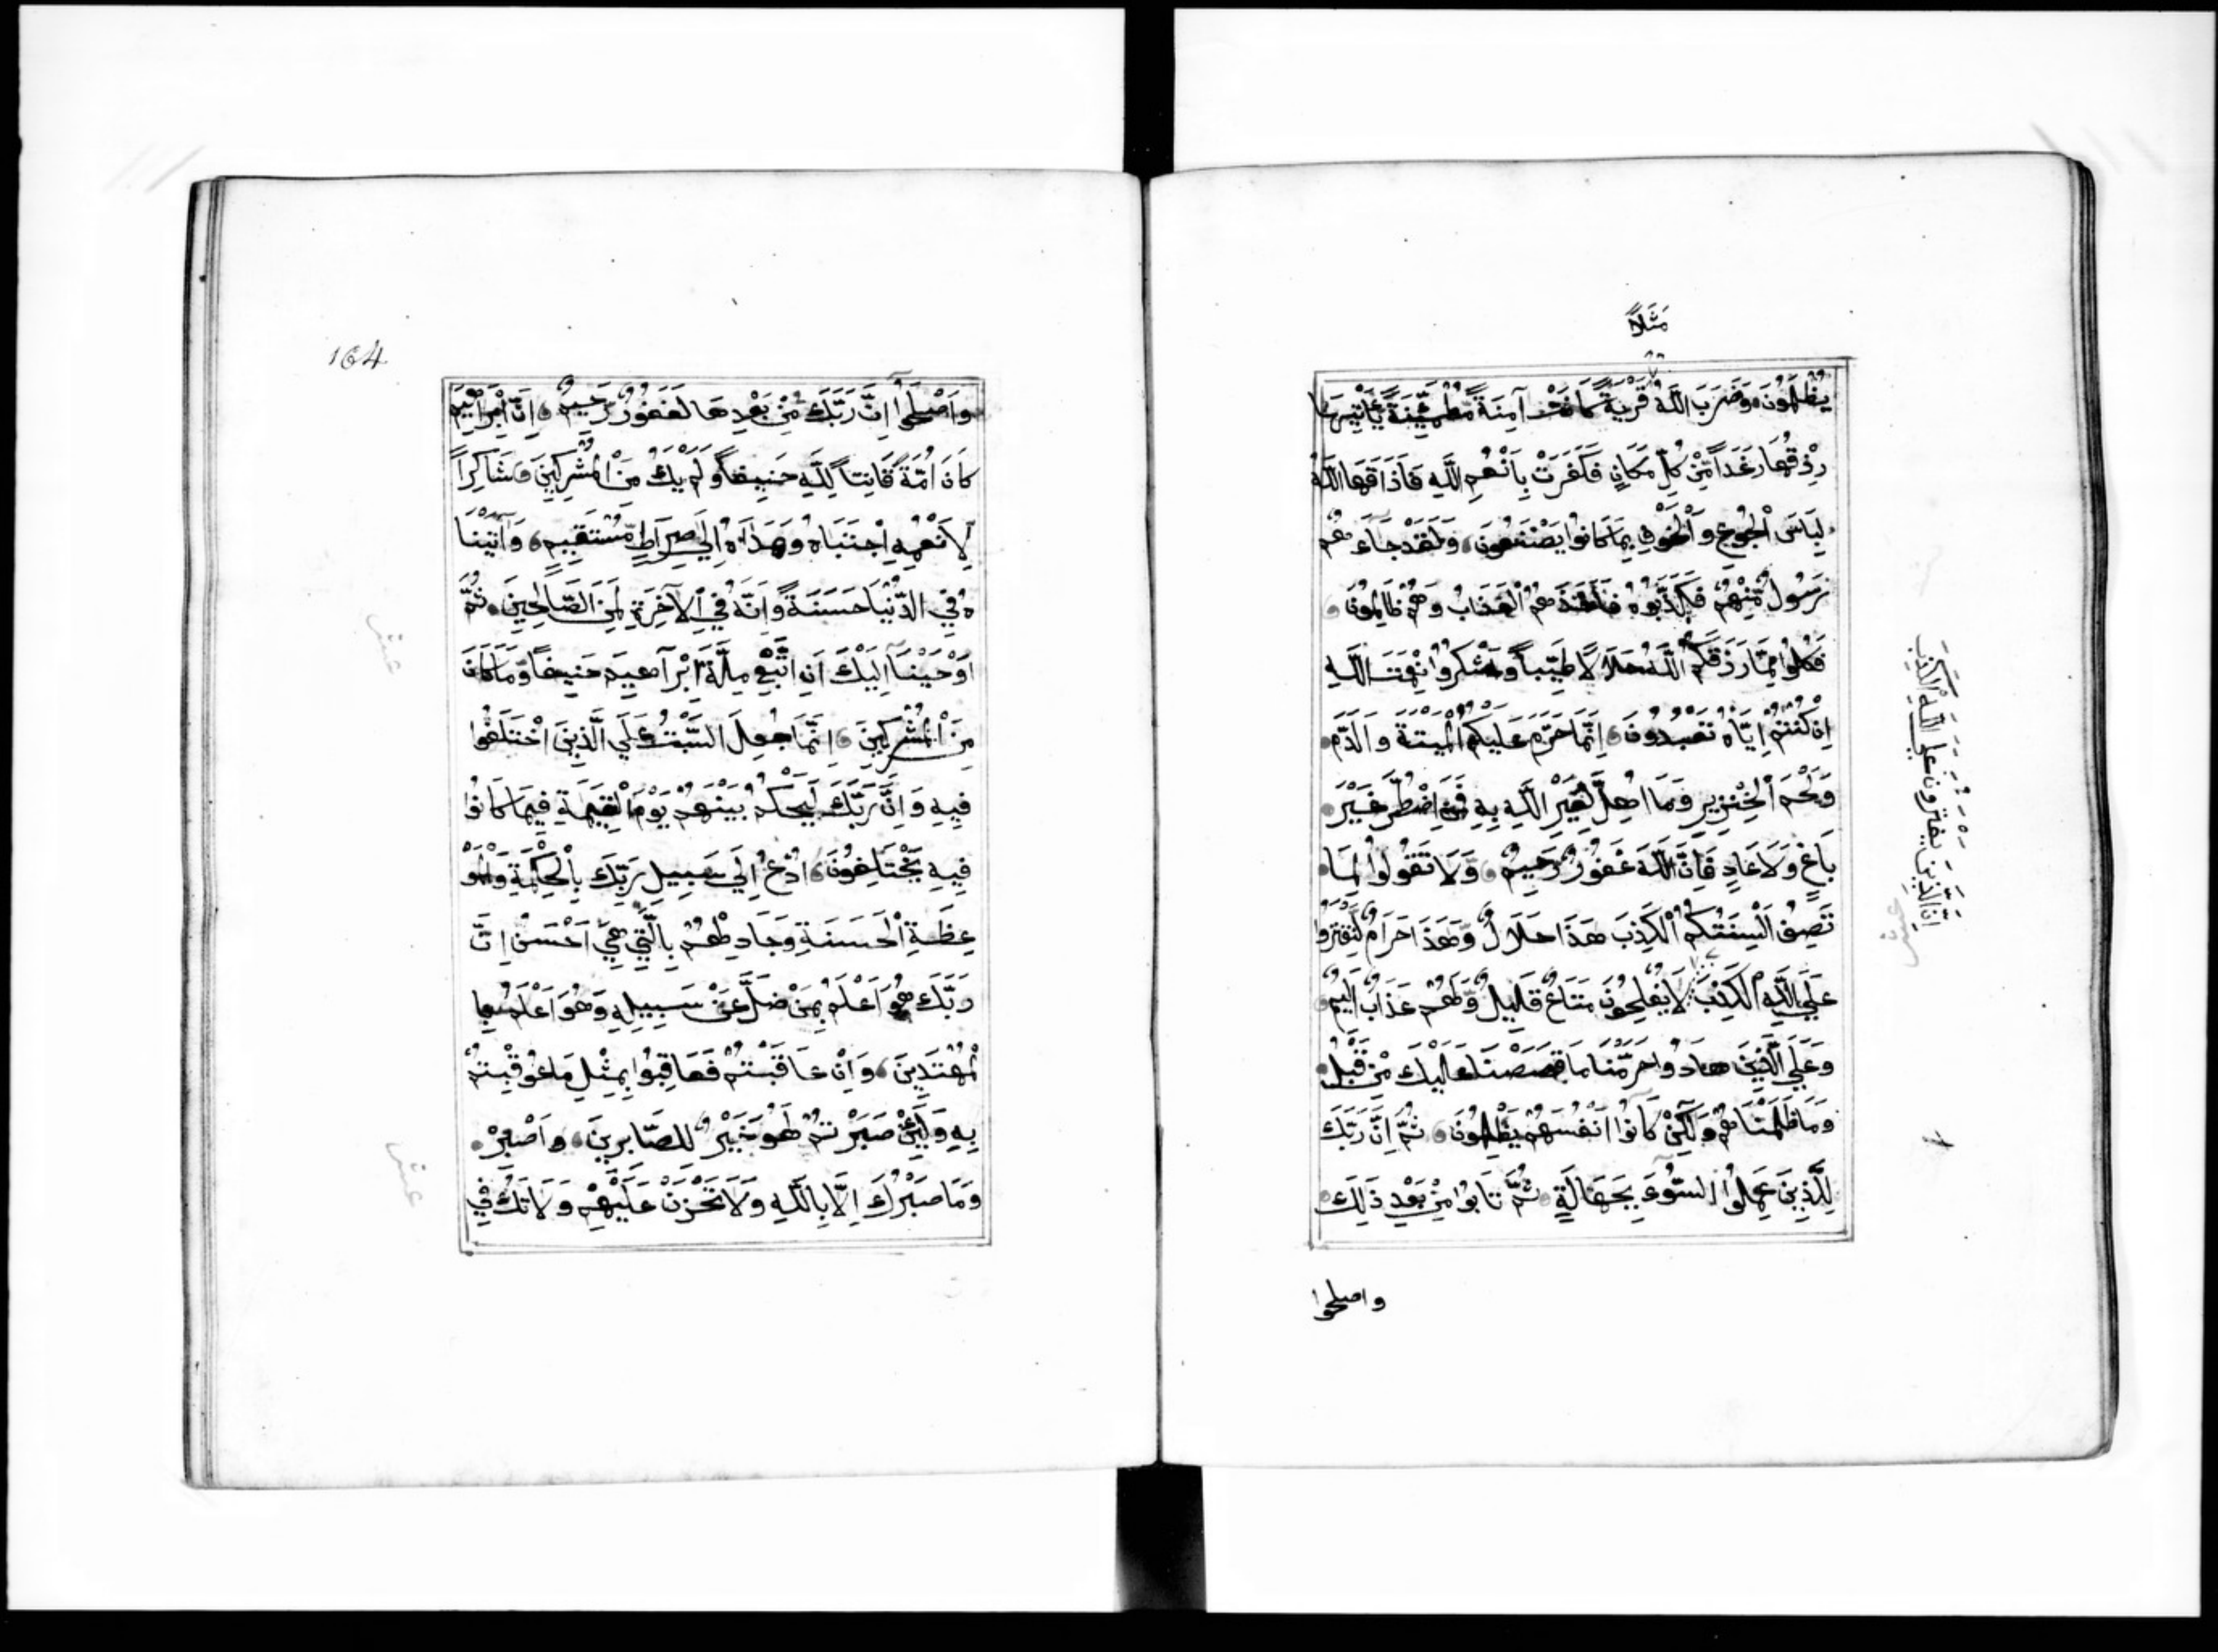 مَثَلًا
يُظْلَمُونَ وَضَرَبَ اللَّهُ قَرْيَةً كَانَتْ آمِنَةً مُّطْمَئِنَّةً يَّأْتِيهَا
رِزْقُهَا رَغَدًا مِّنْ كُلِّ مَكَانٍ فَكَفَرَتْ بِأَنْعُمِ اللَّهِ فَأَذَاقَهَا اللَّهُ
لِبَاسَ الْجُوعِ وَالْخَوْفِ بِمَا كَانُوا يَصْنَعُونَ وَلَقَدْ جَاءَهُمْ
رَسُولٌ مِّنْهُمْ فَكَذَّبُوهُ فَأَخَذَهُمُ الْعَذَابُ وَهُمْ ظَالِمُونَ
فَكُلُوا مِمَّا رَزَقَكُمُ اللَّهُ حَلَالًا طَيِّبًا وَاشْكُرُوا نِعْمَتَ اللَّهِ
إِنْ كُنْتُمْ إِيَّاهُ تَعْبُدُونَ إِنَّمَا حَرَّمَ عَلَيْكُمُ الْمَيْتَةَ وَالدَّمَ
وَلَحْمَ الْخِنْزِيرِ وَمَا أُهِلَّ لِغَيْرِ اللَّهِ بِهِ فَمَنِ اضْطُرَّ غَيْرَ
بَاغٍ وَلَا عَادٍ فَإِنَّ اللَّهَ غَفُورٌ رَحِيمٌ وَلَا تَقُولُوا لِمَا
تَصِفُ أَلْسِنَتُكُمُ الْكَذِبَ هَذَا حَلَالٌ وَهَذَا حَرَامٌ لِّتَفْتَرُوا
عَلَي اللَّهِ الْكَذِبَ لَا يُفْلِحُونَ مَتَاعٌ قَلِيلٌ وَّلَهُمْ عَذَابٌ أَلِيمٌ
وَعَلَي الَّذِينَ هَادُوا حَرَّمْنَا مَا قَصَصْنَا عَلَيْكَ مِنْ قَبْلُ
وَمَا ظَلَمْنَاهُمْ وَلَكِنْ كَانُوا أَنْفُسَهُمْ يَظْلِمُونَ ثُمَّ إِنَّ رَبَّكَ
لِلَّذِينَ عَمِلُوا السُّوءَ بِجَهَالَةٍ ثُمَّ تَابُوا مِنْ بَعْدِ ذَلِكَ
واصلحوا
إِنَّ الَّذِينَ يَفْتَرُونَ عَلَي اللَّهِ الْكَذِبَ
عشر
164
وَأَصْلَحُوا إِنَّ رَبَّكَ مِنْ بَعْدِهَا لَغَفُورٌ رَحِيمٌ إِنَّ إِبْرَاهِيمَ
كَانَ أُمَّةً قَانِتًا لِّلَّهِ حَنِيفًا وَلَمْ يَكُ مِنَ الْمُشْرِكِينَ شَاكِرًا
لِأَنْعُمِهِ اجْتَبَاهُ وَهَدَاهُ إِلَي صِرَاطٍ مُّسْتَقِيمٍ وَآتَيْنَا
هُ فِي الدُّنْيَا حَسَنَةً وَإِنَّهُ فِي الْآخِرَةِ لَمِنَ الصَّالِحِينَ ثُمَّ
أَوْحَيْنَا إِلَيْكَ أَنِ اتَّبِعْ مِلَّةَ إِبْرَاهِيمَ حَنِيفًا وَّمَا كَانَ
مِنَ الْمُشْرِكِينَ إِنَّمَا جُعِلَ السَّبْتُ عَلَي الَّذِينَ اخْتَلَفُوا
فِيهِ وَإِنَّ رَبَّكَ لَيَحْكُمُ بَيْنَهُمْ يَوْمَ الْقِيَمَةِ فِيمَا كَانُوا
فِيهِ يَخْتَلِفُونَ ادْعُ إِلَي سَبِيلِ رَبِّكَ بِالْحِكْمَةِ وَالْمَوْ
عِظَةِ الْحَسَنَةِ وَجَادِلْهُمْ بِالَّتِي هِيَ أَحْسَنُ إِنَّ
رَبَّكَ هُوَ أَعْلَمُ بِمَنْ ضَلَّ عَنْ سَبِيلِهِ وَهُوَ أَعْلَمُ بِا
لْمُهْتَدِينَ وَإِنْ عَاقَبْتُمْ فَعَاقِبُوا بِمِثْلِ مَا عُوقِبْتُمْ
بِهِ وَلَئِنْ صَبَرْتُمْ لَهُوَ خَيْرٌ لِلصَّابِرِينَ وَاصْبِرْ
وَمَا صَبْرُكَ إِلَّا بِاللَّهِ وَلَا تَحْزَنْ عَلَيْهِمْ وَلَا تَكُ فِي
عشر
عشر